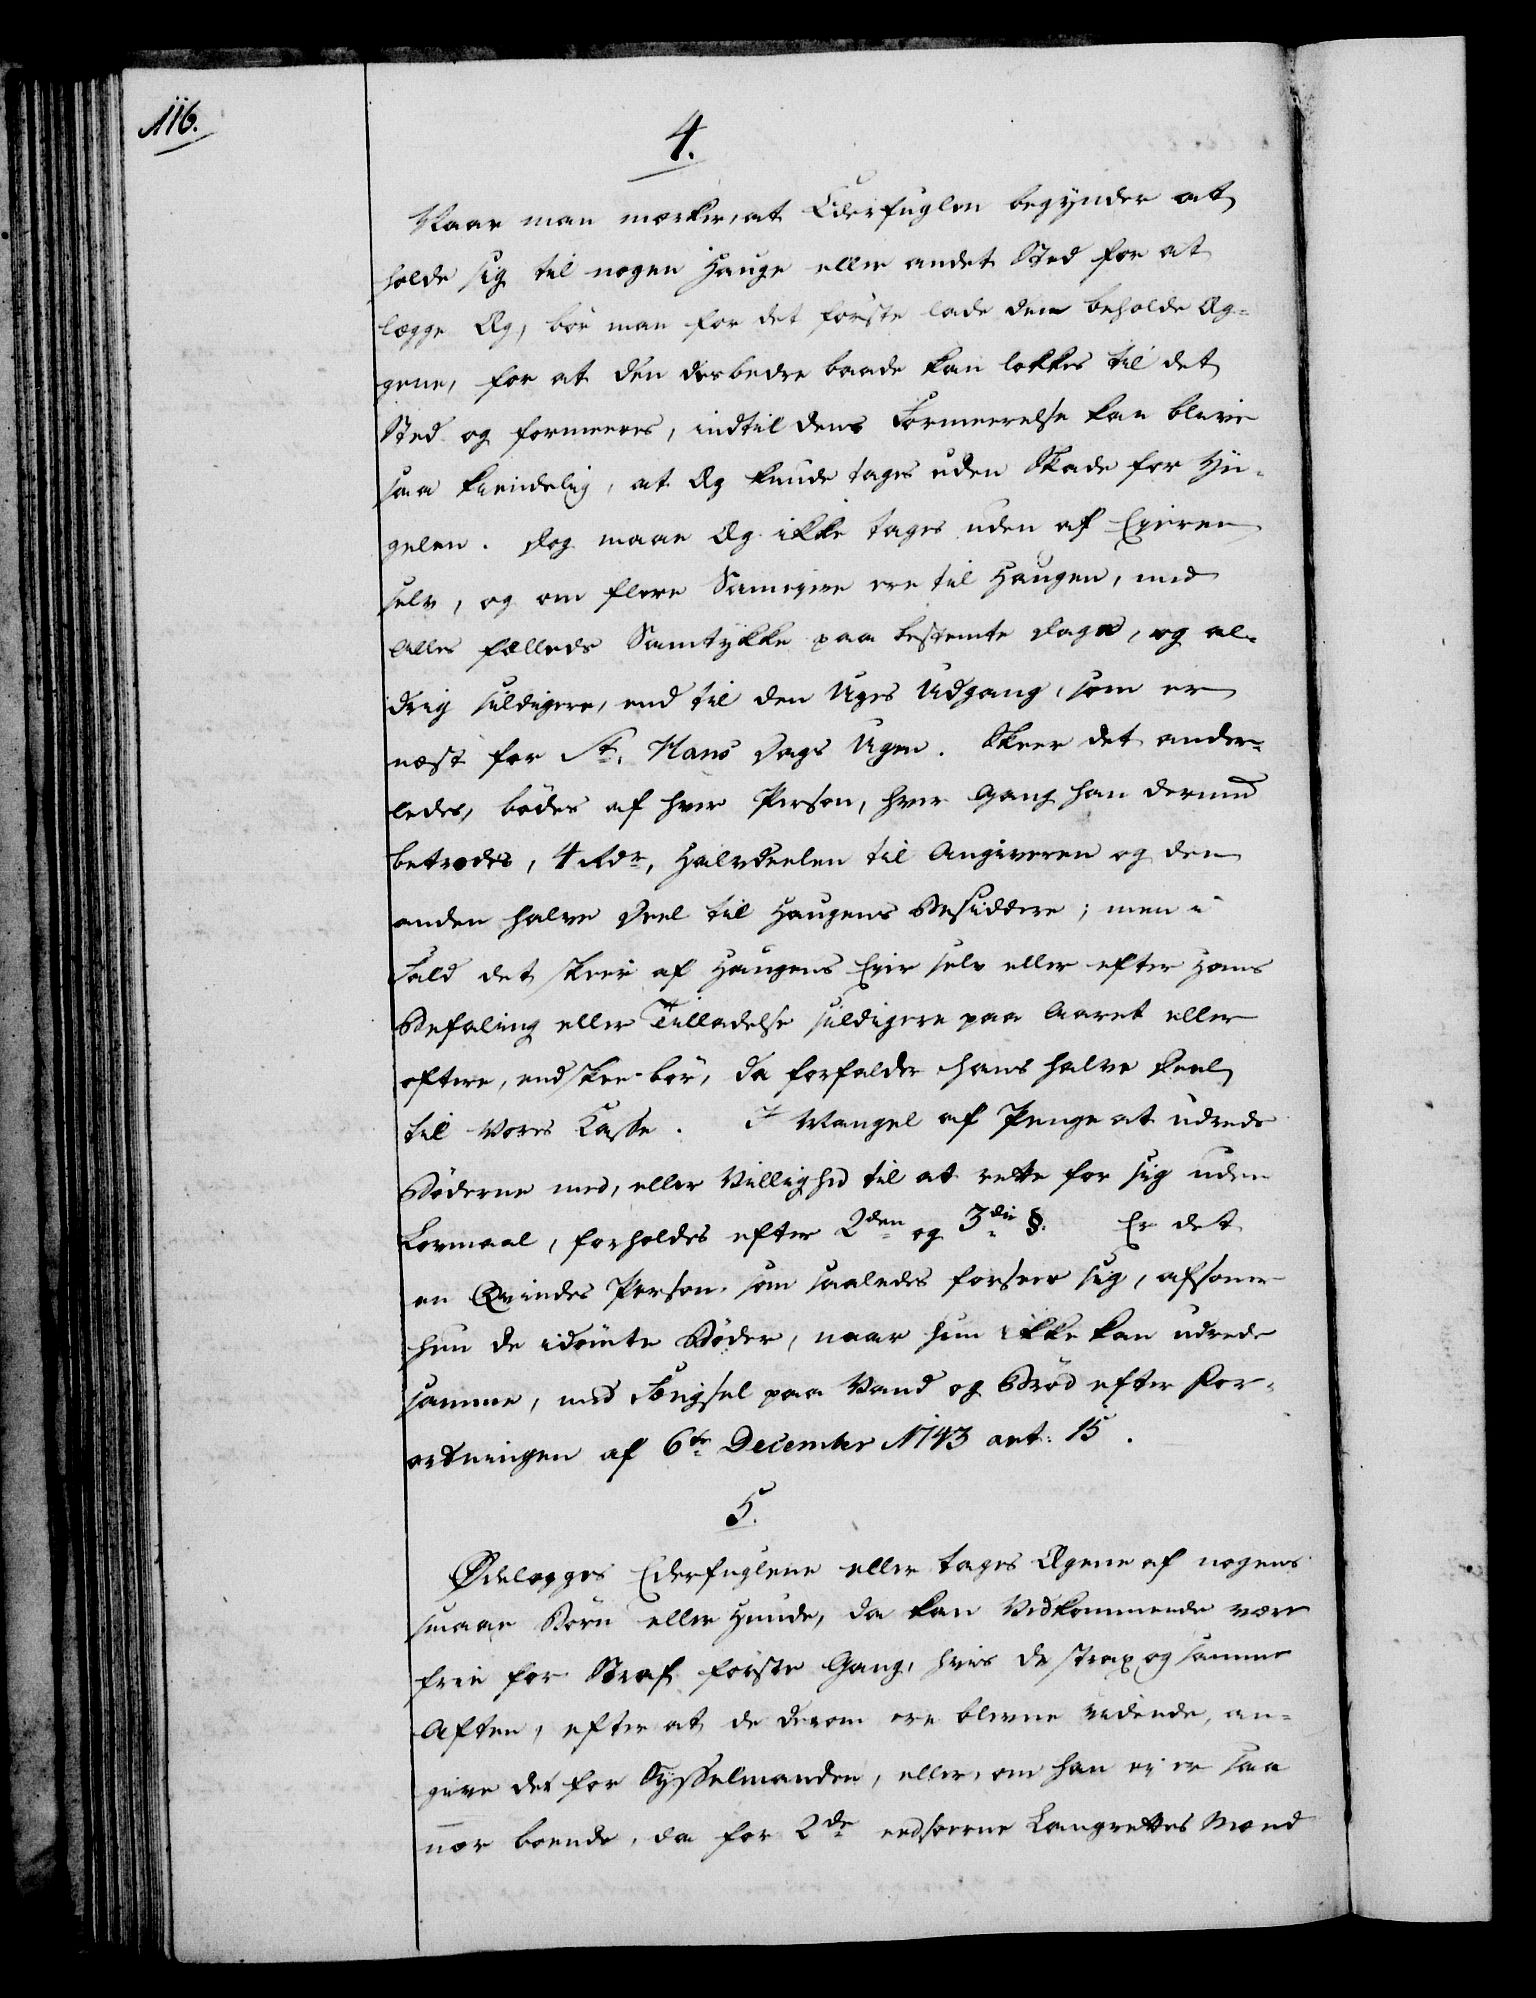 116.
4.
Naar man mærker, at Ederfuglen begynder at
holde sig til nogen Hauge eller andet Sted for at
lægge Æg, bör man for det förste lade den beholde Æg-
gene, for at den desbedre baade kan lokkes til det
Sted og formeeres, indtil dens Formeerelse kan blive
saa kiendelig, at Æg kunde tages uden Skade for Yn-
gelen. Dog maae Æg ikke tages uden af Eyeren
selv, og om flere Sameyere ere til Haugen, med
Alles fælleds Samtykke paa bestemte Dage, og al-
drig sildigere, end til den Uges Udgang, som er
næst for St. Hans Dags Ugen. Skeer det ander-
ledes, bödes af hver Person, hver Gang han dermed
betrædes, 4 Rdr, Halvdeelen til Angiveren og den
anden halve Deel til Haugens Besiddere; men i
Fald det skeer af Haugens Eyer selv eller efter Hans
Befaling eller Tilladelse sildigere paa Aaret eller
oftere, end skee bör, da forfalder hans halve Deel
til Vores Casse. I Mangel af Penge at udrede
Böderne med, eller Villighed til at rette for sig uden
Lovmaal, forholdes efter 2den og 3die §. Er det
en Qvindes Person, som saaledes forseer sig, afsoner
hun de idömte Böder, naar hun ikke kan udrede
samme, med Fængsel paa Vand og Bröd efter For-
ordningen af 6te December 1743 art: 15.
5.
Ödelægges Ederfuglene eller tages Æggene af nogens
smaae Börn eller Hunde, da kan Vedkommende være
frie for Straf förste Gang, hvis de strax og samme
Aften, efter at de derom ere blevne vidende, an-
give det for Sysselmanden, eller, om han ej er saa
nær boende, da for 2de eedsvorne Laugrettes Mænd